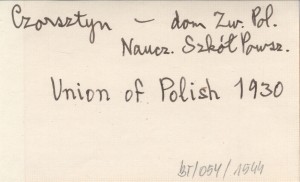 Czorsztyn – dom Zw. Pol.
Naucz. Szkół Powsz.
Union of Polish 1930
bT/054/1544